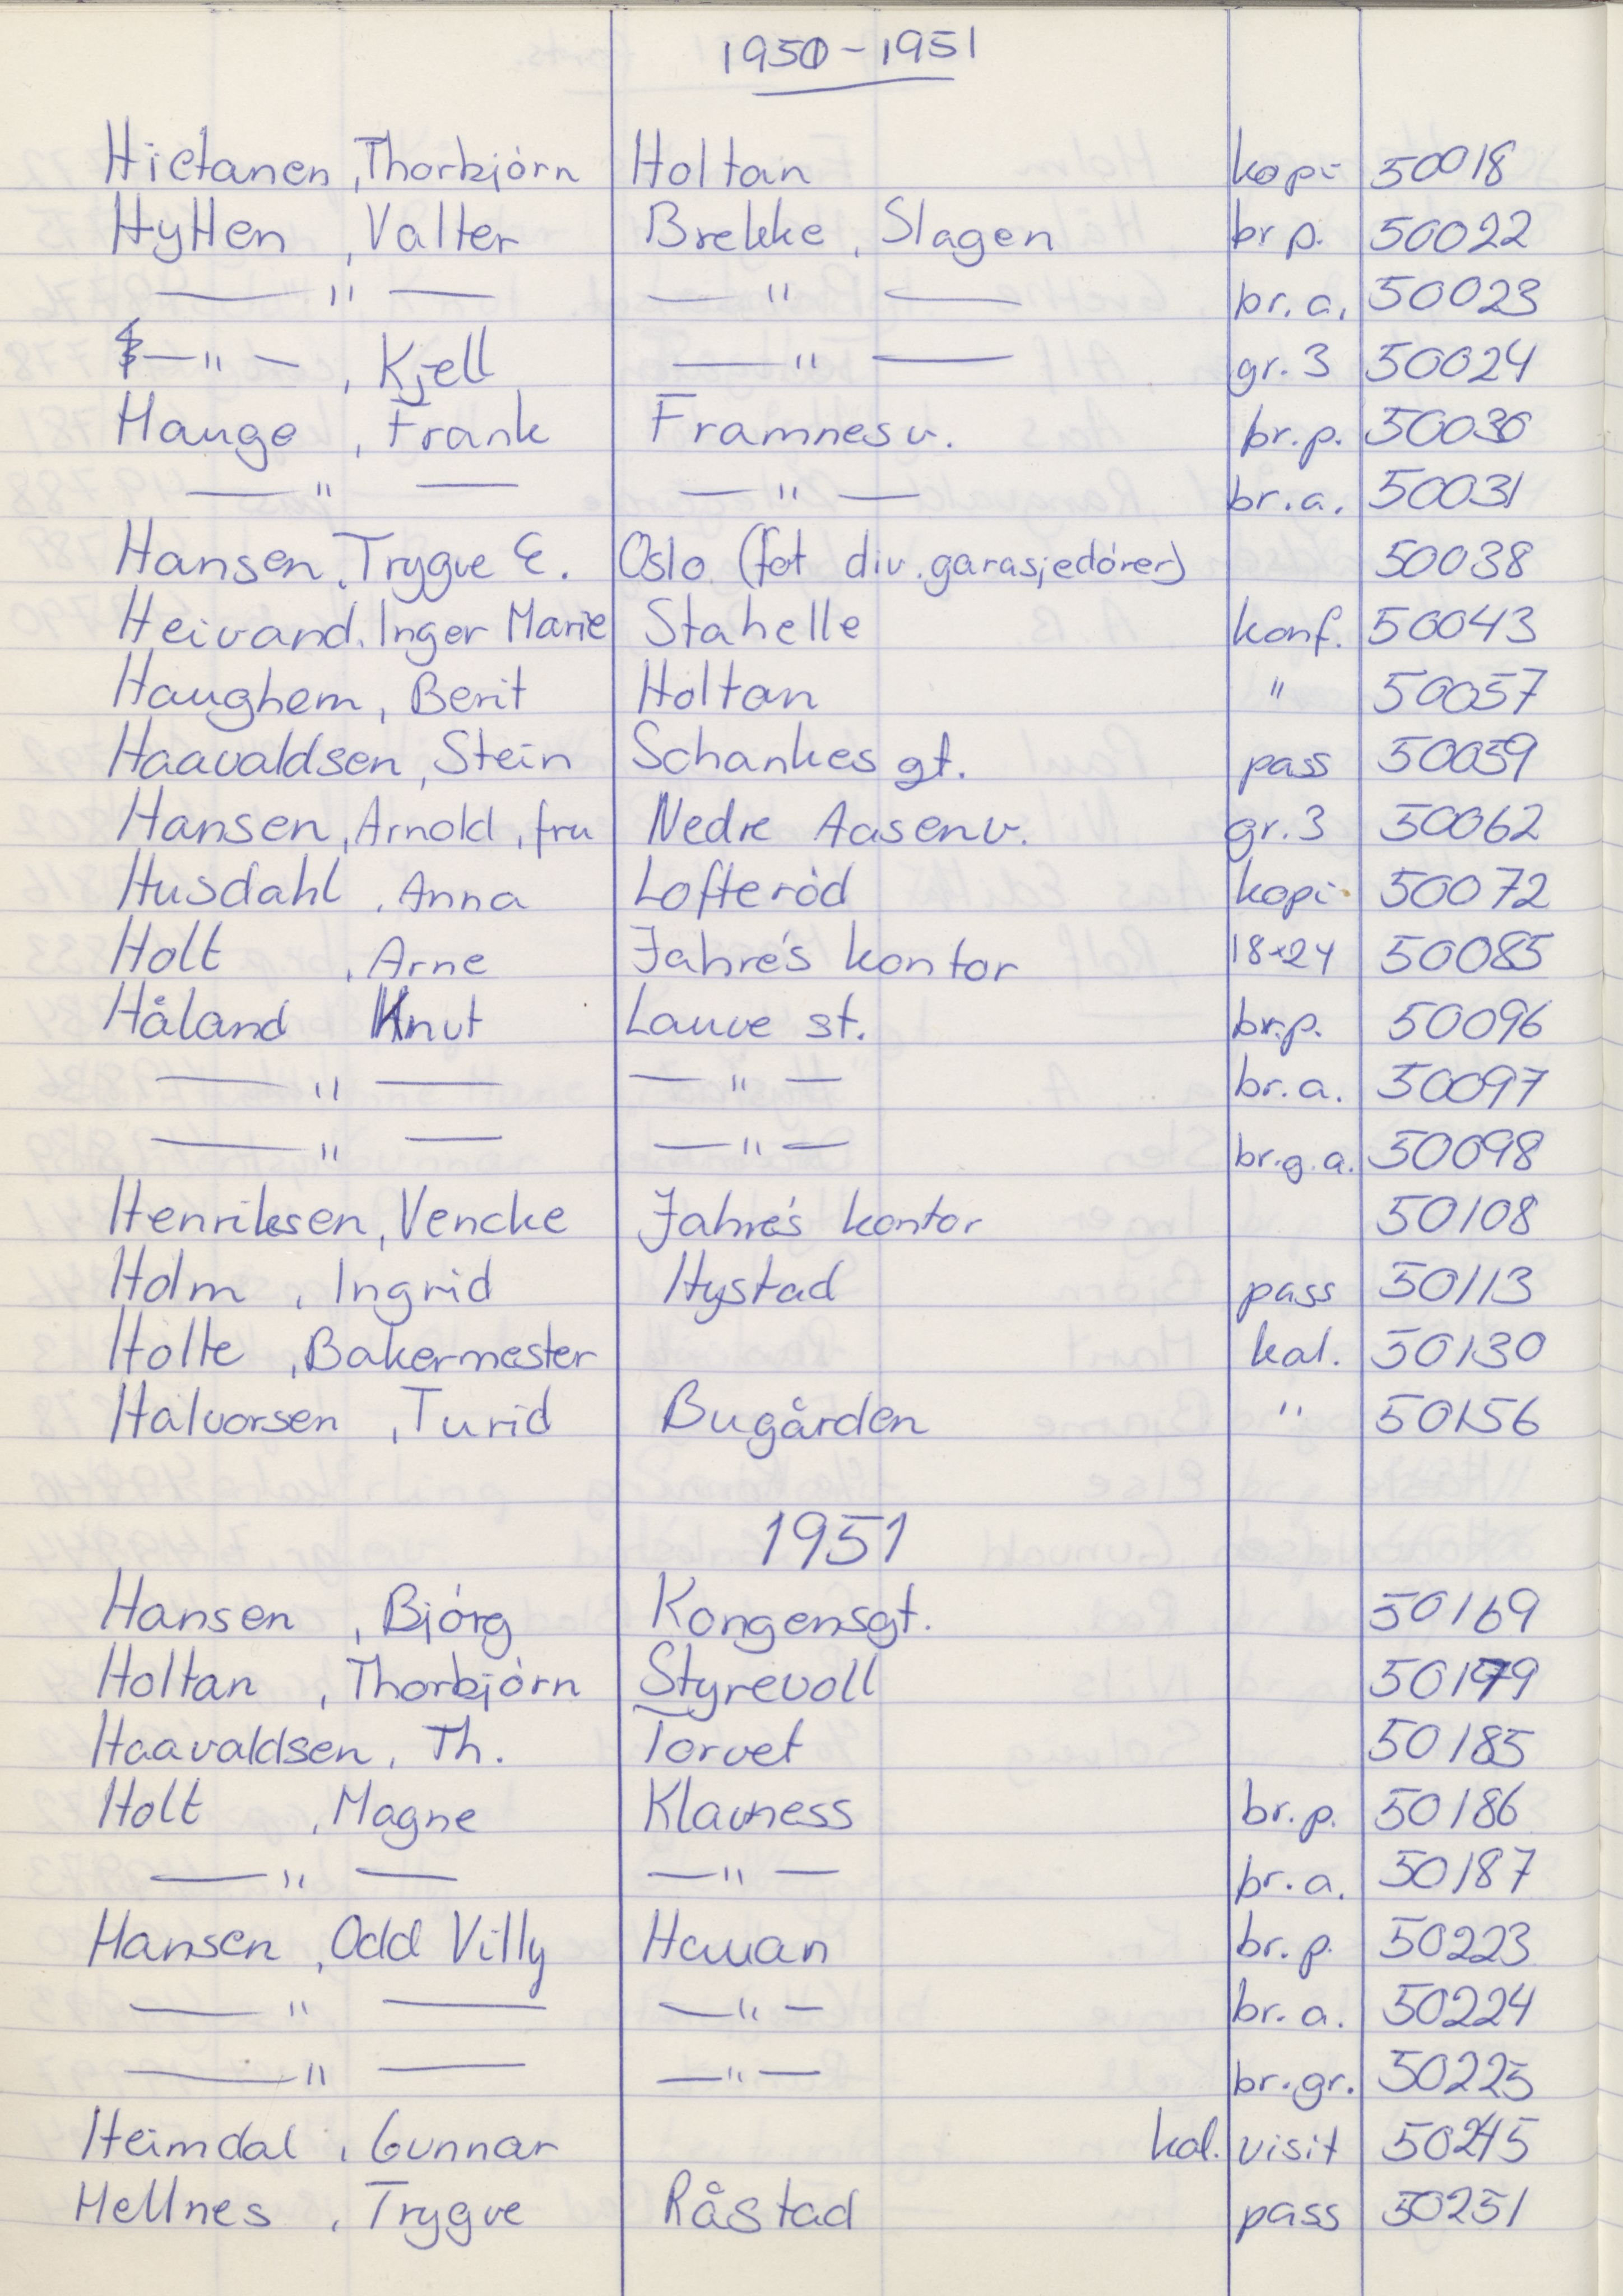 1950 - 1951
Hietanen, Thorbjörn Holtan kopi 50018
Hytten, Valter Brekke, Slagen br p. 50022
— " — — " — br. a. 50023
— " —, Kjell — " — gr. 3 50024
Hauge, Frank Framnesv. br. p. 50030
— " — — " — br. a. 50031
Hansen, Trygve E. Oslo (fot div. garasjedörer) 50038
Heivand, Inger Marie Stahelle konf. 50043
Haughem, Berit Holtan " 50057
Haavaldsen, Stein Schankes gt. pass 50059
Hansen, Arnold, fru Nedre Aasenv. gr. 3 50062
Husdahl, Anna Lofteröd kopi 50072
Holt, Arne Jahre's kontor 18x24 50085
Håland Knut Lauve st. br.p. 50096
— " — — " — br. a. 50097
— " — — " — br. g. a. 50098
Henriksen, Vencke Jahre's kontor 50108
Holm, Ingrid Hystad pass 50113
Holte, Bakermester kal. 50130
Halvorsen, Turid Bugården " 50156
1951
Hansen, Björg Kongensgt. 50169
Holtan, Thorbjörn Styrevoll 50179
Haavaldsen, Th. Torvet 50185
Holt, Magne Klavness br. p. 50186
— " — — " — br. a. 50187
Hansen, Odd Villy Hauan br. p. 50223
— " — — " — br. a. 50224
— " — — " — br. gr. 50225
Heimdal, Gunnar kal. visit 50245
Hellnes, Trygve Råstad pass 50251